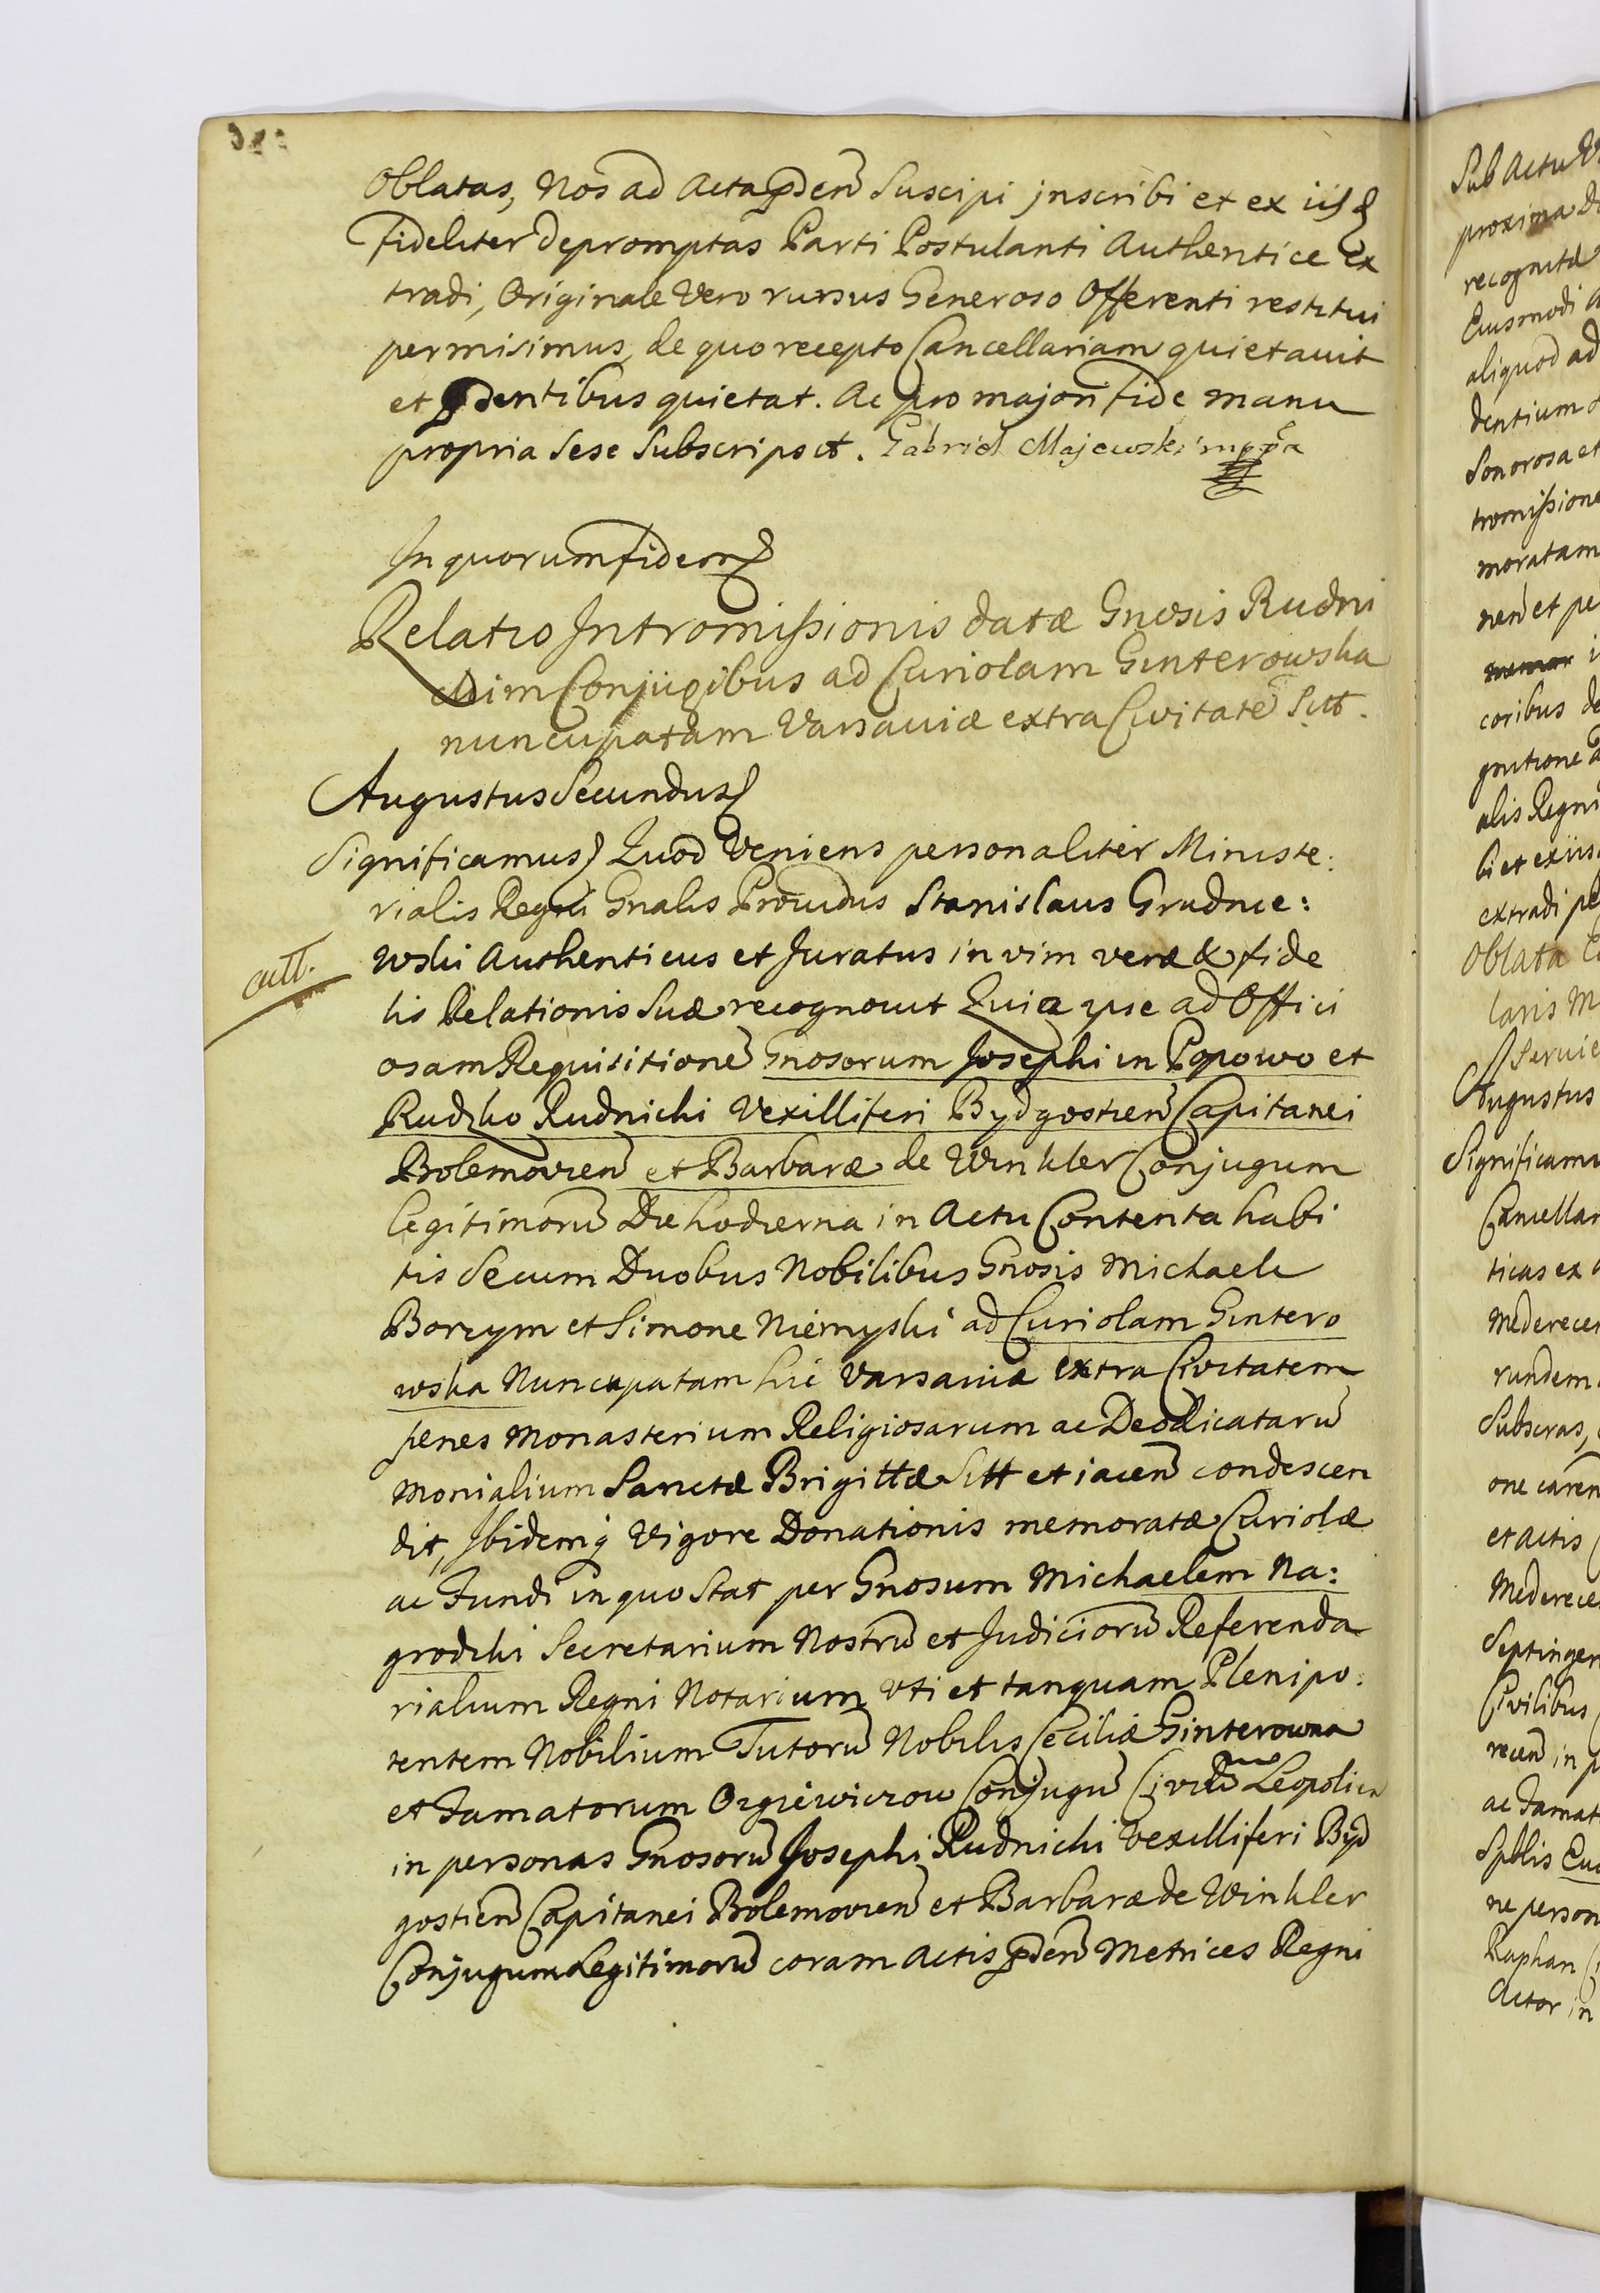 Oblatas, Nos ad Acta pñden̄ Suscipi jnscribi et ex iis
fideliter depromptas Parti Postulanti Authentice Ex
tradi, Originale Vero rursus Generoso Offerenti restitui
permisimus, de quo recepto Cancellariam quietavit
et pñdentibus quietat. Ac pro majori fide manu
propria sese Subscripsit. Gabriel Majewski mppa
In quorum fidem
Relatio Intromissionis datæ Gnosis Rudni
ckim Conjugibus ad Curiolam Ginterowska
nuncupatam Varsaviæ extra Civitatē Sitt.
Augustus Secundus
Significamus Quod Veniens personaliter Ministe:
rialis Regni Gnalis Providus Stanislaus Grudnie:
wski Authenticus et Juratus in vim veræ & fide
cull.
lis Relationis Suæ recognovit Quia ipse ad Offici
osam Requisitionē Gnosorum Josephi in Popowo et
Rudzko Rudnicki Vexilliferi Bydgostien̄ Capitanei
Bolemovien̄ et Barbaræ de Winkler Conjugum
legitimorū Die hodierna in Actu Contenta habi
tis Secum Duobus Nobilibus Gnosis Michaele
Borzym et Simone Niemyski ad Curiolam Gintero
wska Nuncupatam hic Varsaviæ Extra Civitatem
penes Monasterium Religiosarum ac Deo dicatarū
Monialium Sanctæ Brigittæ Sitt et iacen̄ condescen
dit, Ibidemq̃ Vigore Donationis memoratæ Curiolæ
ac Fundi in quo Stat per Gnosum Michaelem Na:
grodzki Secretarium Nostrū et Judiciorū Referenda
rialium Regni Notarium uti et tanquam Plenipo:
tentem Nobilium Tutorū Nobilis Ceciliæ Ginterowna
et Famatorum Orgiewiczow Conjugū Civiū Leopolien
in personas Gnosorū Josephi Rudnicki Vexilliferi Byd
gostien̄ Capitanei Bolemovien̄ et Barbaræ de Winkler
Conjugum Legitimorū coram Actis pñden̄ Metrices Regni
Sub Actu
proxima
recognitæ
Eiusmodi
aliquod ad
dentium
Sonorosa et
tromissione
moratam
coribus de
gnitione
alis Regni
bi et ex iis
extradi pe
Oblata
laris M
Servie
Augustus
Significamu
Cancellar
ticas ex
Mederecen
rundem
Subscras,
one caren
et Actis
Mederece
Septingen
Civilibus
recen̄ in p
ac Famat
ne person
Raphan
Actor in